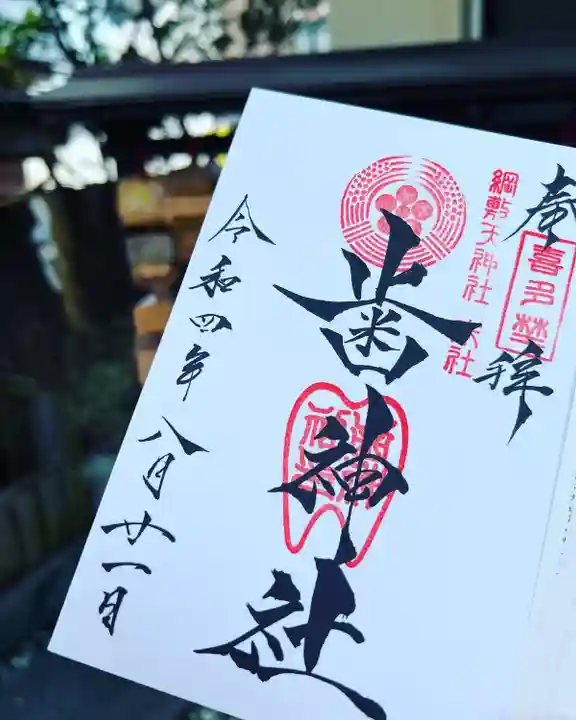 奉拝
喜多埜
綱敷天神社 末社
歯神社
歯神社
令和四年八月廿一日